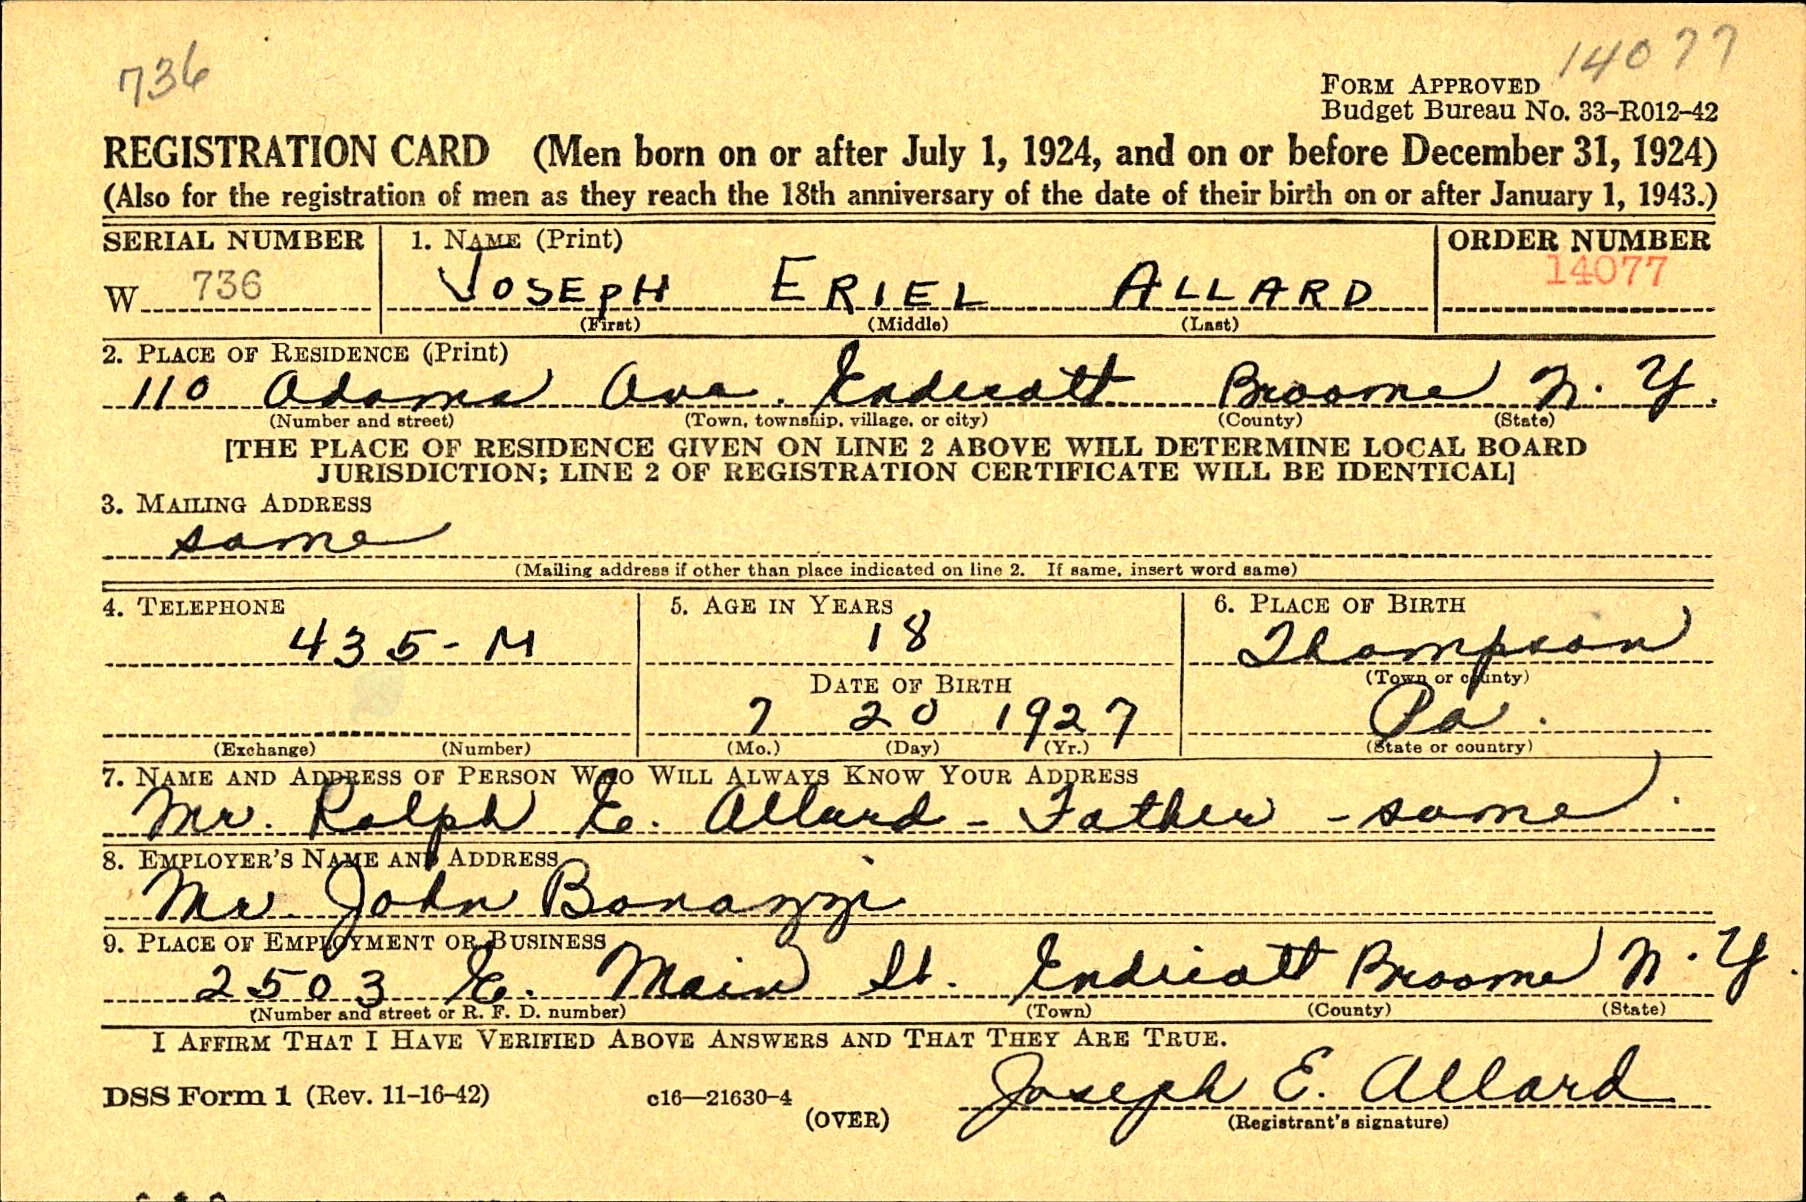 736
14077
FORM APPROVED
Budget Bureau No. 33-R012-42
REGISTRATION CARD (Men born on or after July 1, 1924, and on or before December 31, 1924)
(Also for the registration of men as they reach the 18th anniversary of the date of their birth on or after January 1, 1943.)
SERIAL NUMBER 1. NAME (Print) ORDER NUMBER
W 736 JOSEPH ERIEL ALLARD 14077
(First) (Middle) (Last)
2. PLACE OF RESIDENCE (Print)
110 Adams Ave. Endicott Broome N.Y.
(Number and street) (Town, township, village, or city) (County) (State)
[THE PLACE OF RESIDENCE GIVEN ON LINE 2 ABOVE WILL DETERMINE LOCAL BOARD
JURISDICTION; LINE 2 OF REGISTRATION CERTIFICATE WILL BE IDENTICAL]
3. MAILING ADDRESS
same
(Mailing address if other than place indicated on line 2. If same, insert word same)
4. TELEPHONE 5. AGE IN YEARS 6. PLACE OF BIRTH
435-M 18 Thompson
(Town or county)
DATE OF BIRTH
7 20 1927 Pa.
(Exchange) (Number) (Mo.) (Day) (Yr.) (State or country)
7. NAME AND ADDRESS OF PERSON WHO WILL ALWAYS KNOW YOUR ADDRESS
Mr. Ralph E. Allard - Father - same
8. EMPLOYER'S NAME AND ADDRESS
Mr. John Bonazzi
9. PLACE OF EMPLOYMENT OR BUSINESS
2503 E. Main St. Endicott Broome N.Y.
(Number and street or R. F. D. number) (Town) (County) (State)
I AFFIRM THAT I HAVE VERIFIED ABOVE ANSWERS AND THAT THEY ARE TRUE.
DSS Form 1 (Rev. 11-16-42) c16—21630-4 Joseph E. Allard
(OVER) (Registrant's signature)